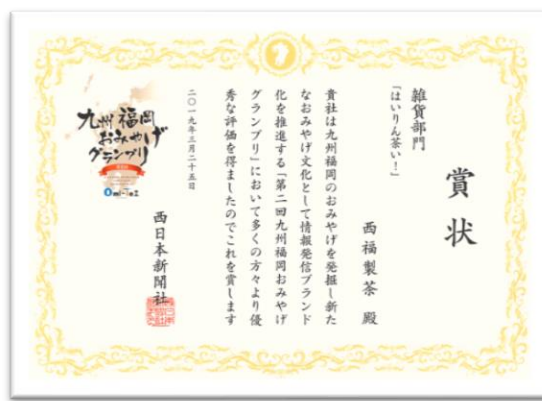 賞状
西福製茶 殿
雑貨部門
「はいりん茶い!」
貴社は九州福岡のおみやげを発掘し新た
なおみやげ文化として情報発信ブランド
化を推進する「第二回九州福岡おみやげ
グランプリ」において多くの方々より優
秀な評価を得ましたのでこれを賞します
二〇一九年三月二十五日
西日本新聞社
九州福岡
おみやげ
グランプリ